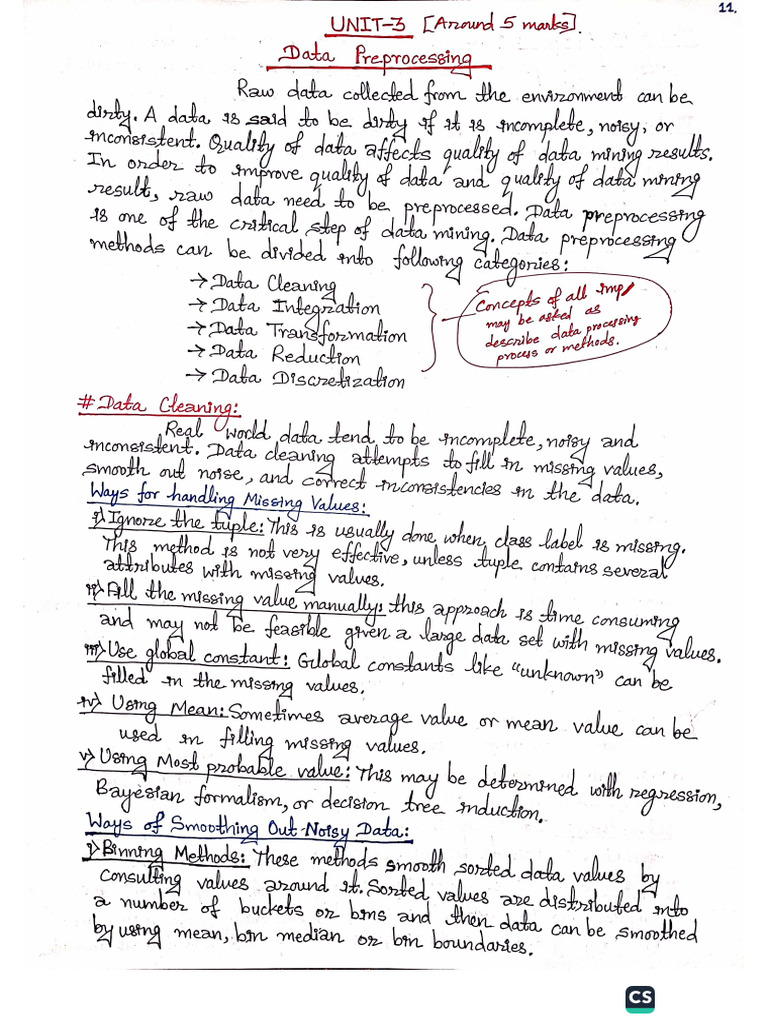 11.
UNIT-3 [Around 5 marks].
Data Preprocessing
Raw data collected from the environment can be
dirty. A data is said to be dirty if it is incomplete, noisy, or
inconsistent. Quality of data affects quality of data mining results.
In order to improve quality of data and quality of data mining
result, raw data need to be preprocessed. Data preprocessing
is one of the critical step of data mining. Data preprocessing
methods can be divided into following categories:
→ Data Cleaning
→ Data Integration
→ Data Transformation
→ Data Reduction
→ Data Discretization
Concepts of all imp/
may be asked as
describe data processing
process or methods.
# Data Cleaning:
Real world data tend to be incomplete, noisy and
inconsistent. Data cleaning attempts to fill in missing values,
smooth out noise, and correct inconsistencies in the data.
Ways for handling Missing Values:
i) Ignore the tuple: This is usually done when class label is missing.
This method is not very effective, unless tuple contains several
attributes with missing values.
ii) Fill the missing value manually: this approach is time consuming
and may not be feasible given a large data set with missing values.
iii) Use global constant: Global constants like "unknown" can be
filled in the missing values.
iv) Using Mean: Sometimes average value or mean value can be
used in filling missing values.
v) Using Most probable value: This may be determined with regression,
Bayesian formalism, or decision tree induction.
Ways of Smoothing Out Noisy Data:
i) Binning Methods: These methods smooth sorted data values by
consulting values around it. Sorted values are distributed into
a number of buckets or bins and then data can be smoothed
by using mean, bin median or bin boundaries.
CS